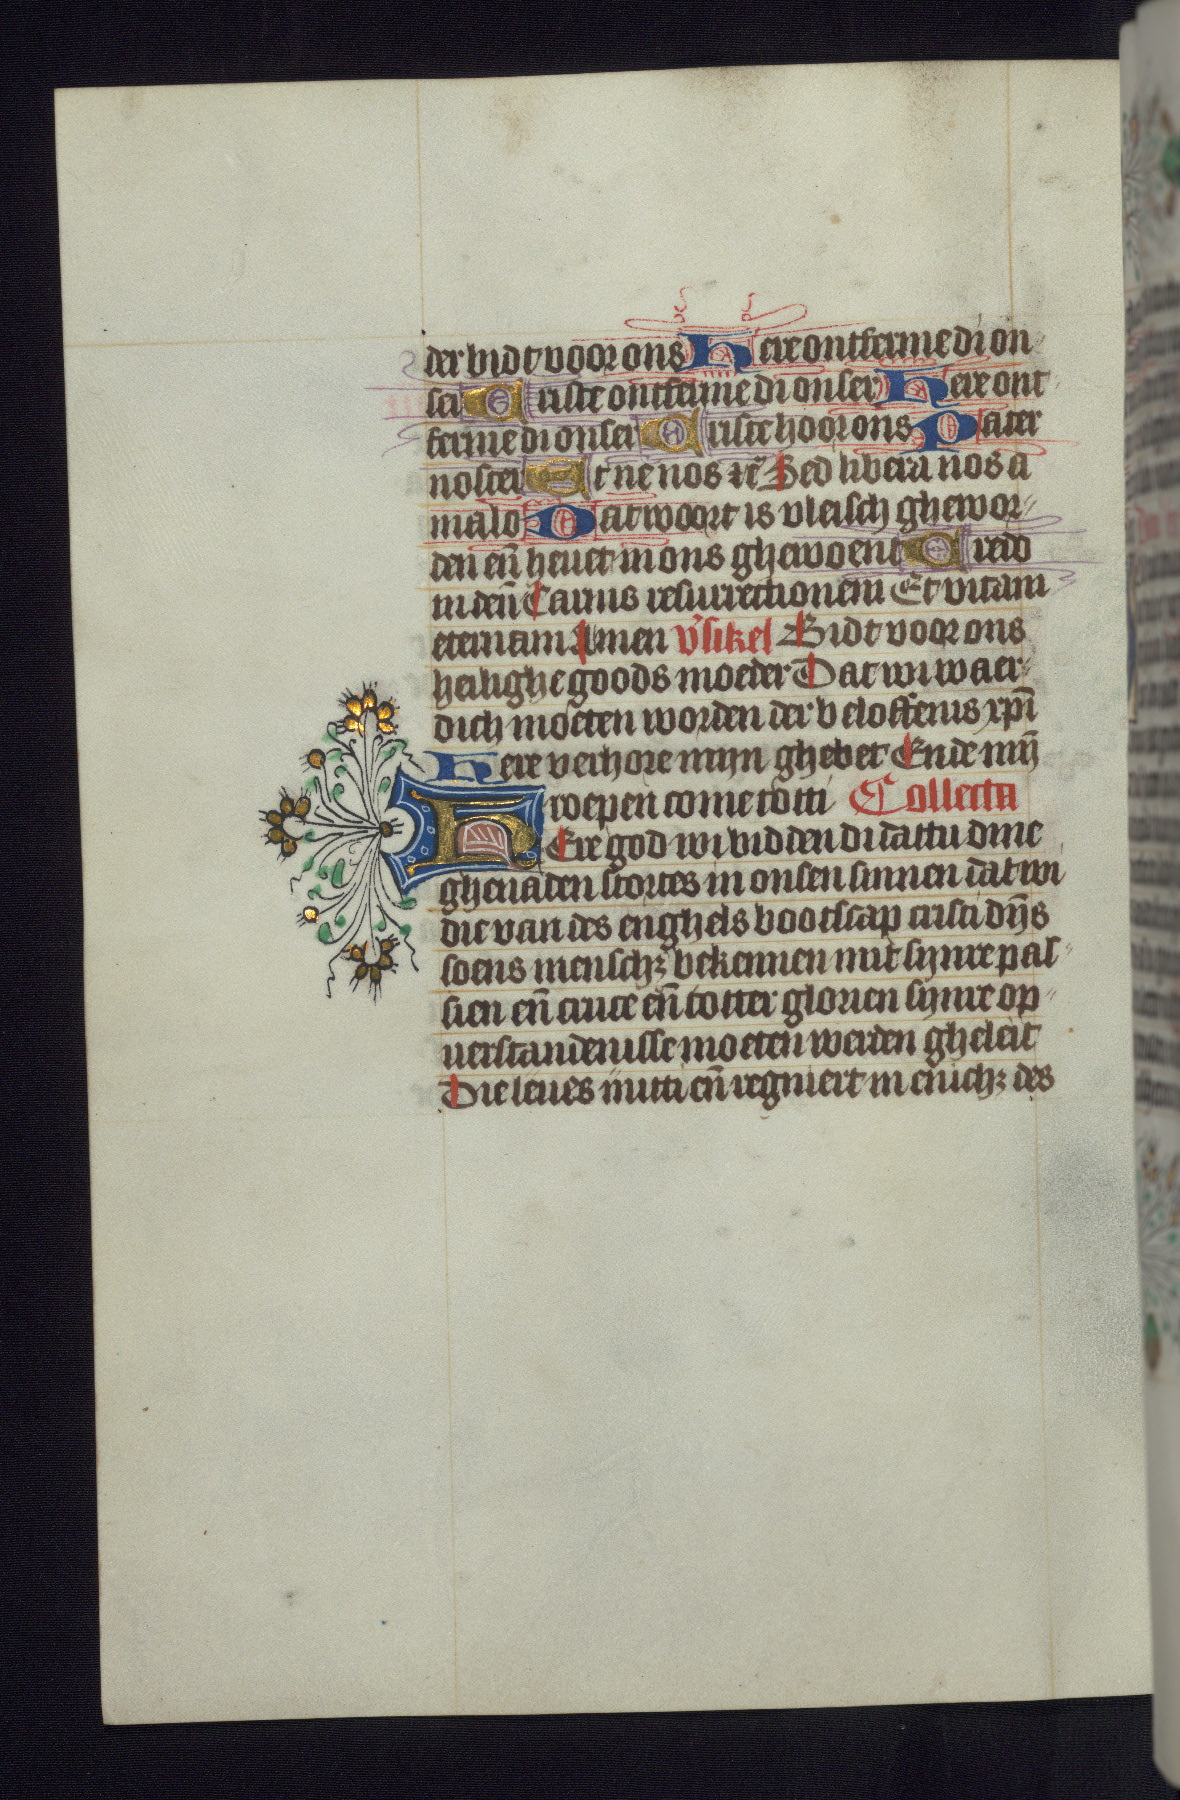 der bidt voor ons Here ontferme di on
ser Criste ontferme di onser Here ont
ferme di onser Criste hoor ons Pater
noster Et ne nos zc̄ Sed libera nos a
malo Dat woort is vleisch ghewor-
den eñ heuet in ons ghewoent Credo
in deū Carnis resurrectionem Et vitam
eternam Amen v̾sikel Bidt voor ons
heilighe goods moeder Dat wi waer-
dich moeten worden der beloffenis xp̄i
Here verhore mijn ghebet Ende mȳ
roepen come to ti Collecta
HEre god wi bidden di dattu dine
ghenaden stortes in onsen sinnen dat wi
die van des enghels bootscap cristi dȳs
soens menschꝫ bekennen mit synre pas-
sien eñ cruce eñ totter glorien synre op-
uerstandenisse moeten werden gheleit
Die leues mitti eñ regniert in enichꝫ des